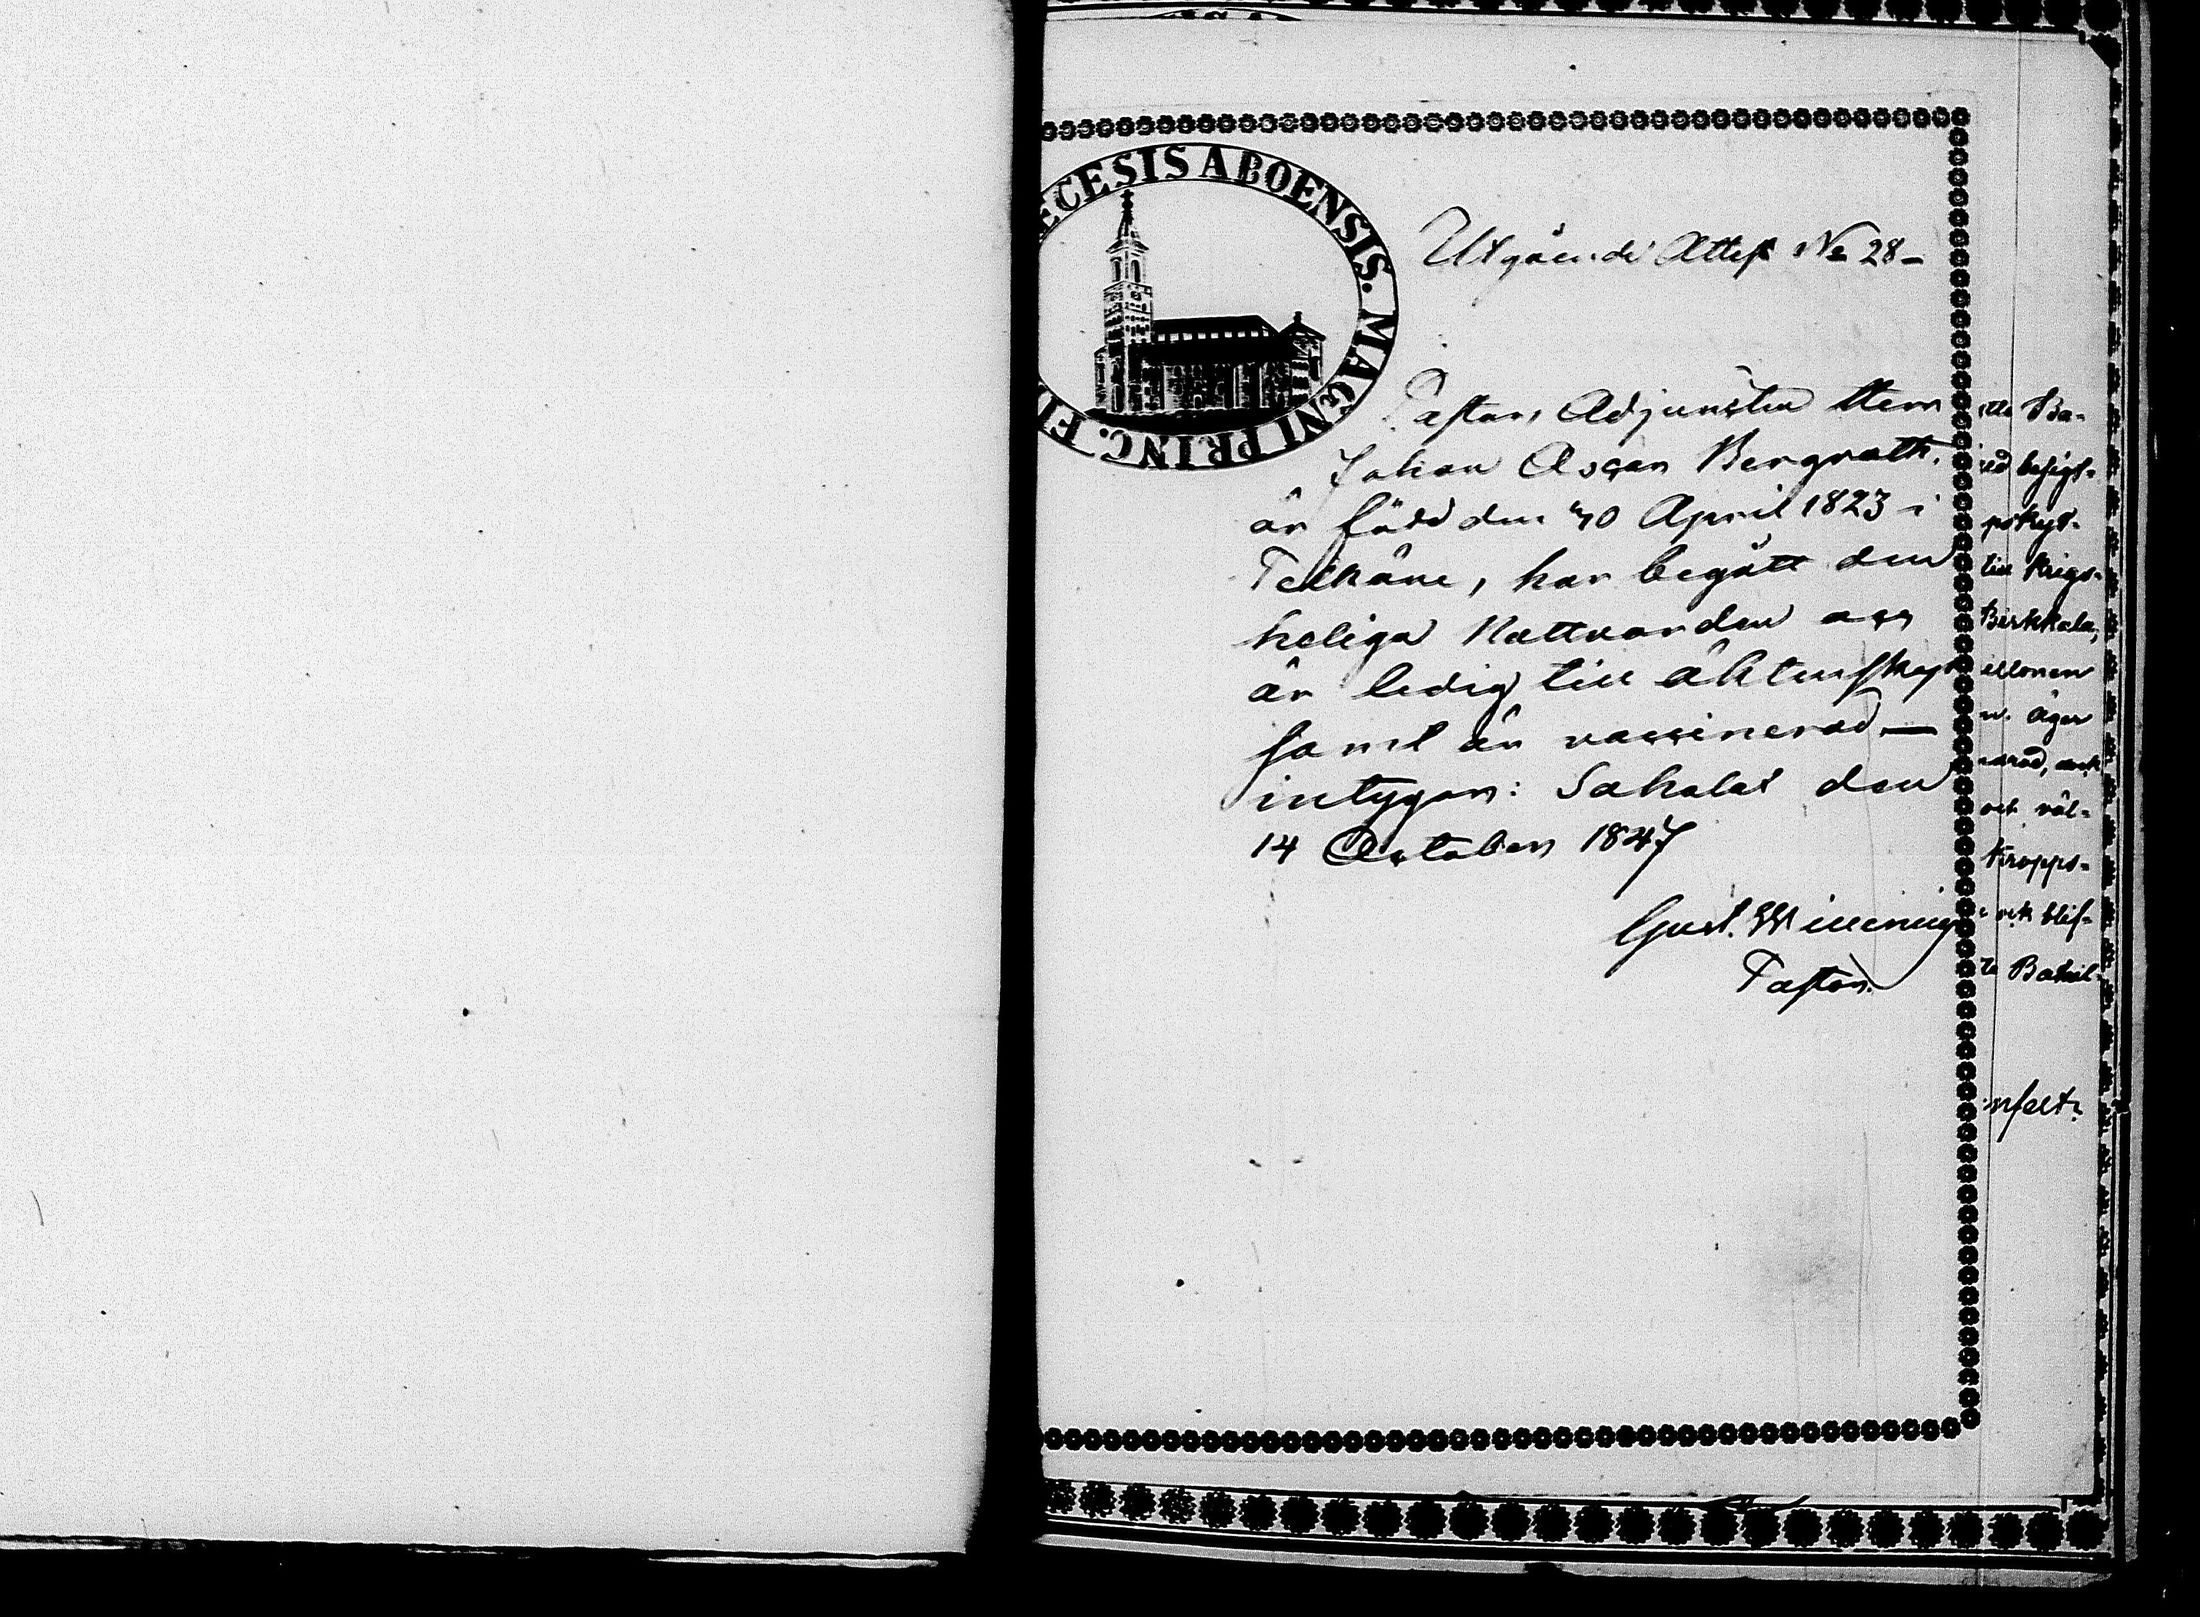 ŒCESIS ABOENSIS. MAGNI PRINC. FI
Utgående Attest No 28-
Pastors Adjuncten Herr
Johan Oscar Bergroth.
är född den 30 April 1823 i
Pelkäne, har begått den
heliga Nattvarden och
är ledig till äktenskap
samt är vaccinerad —
intygar: Sahalax den
14 October 1847
Gust. Winning
Pastor.
Ba-
till Krigs-
Birkkala,
äger
väl-
Kropps-
ock blif-
Batail-